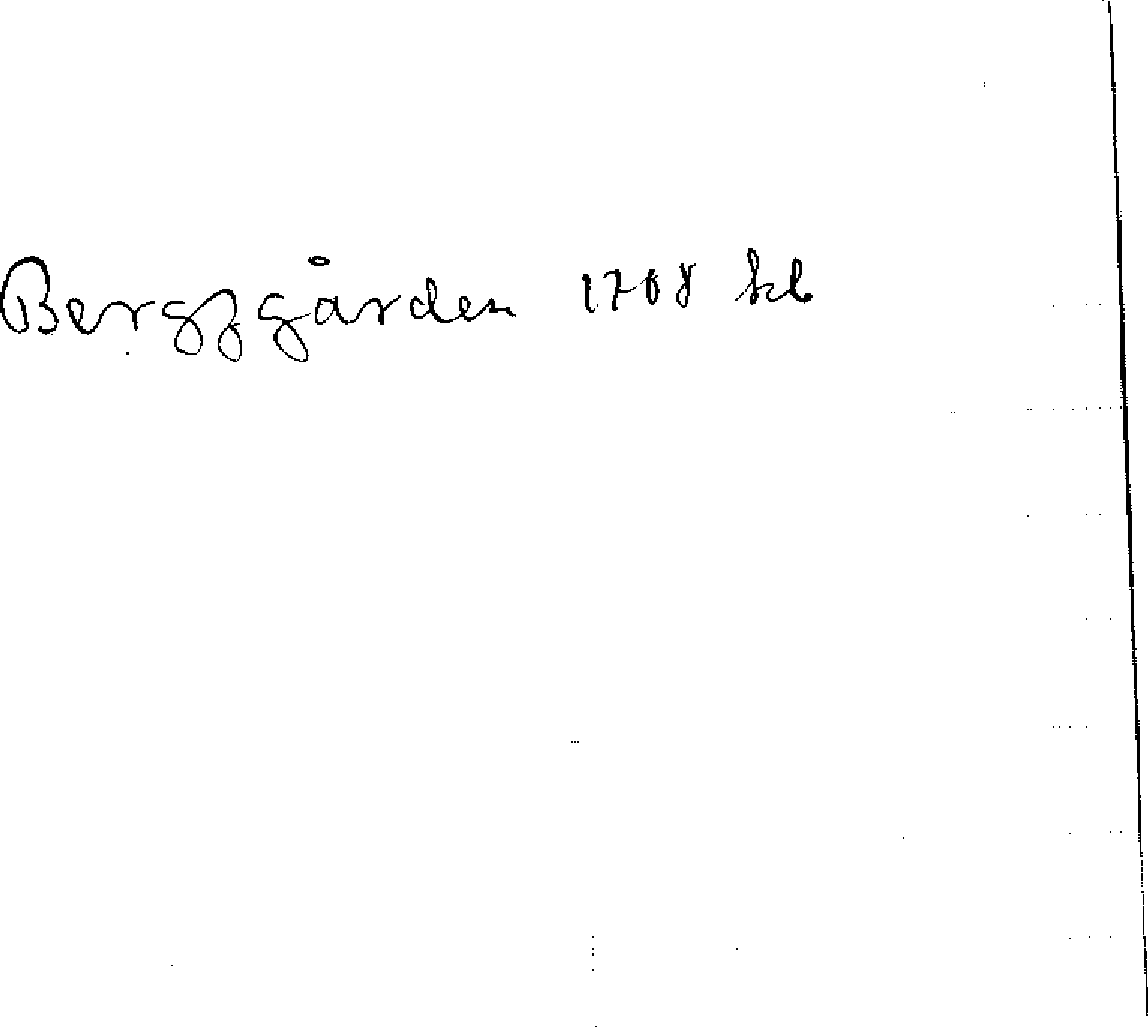 Bergzgården 1708 kb